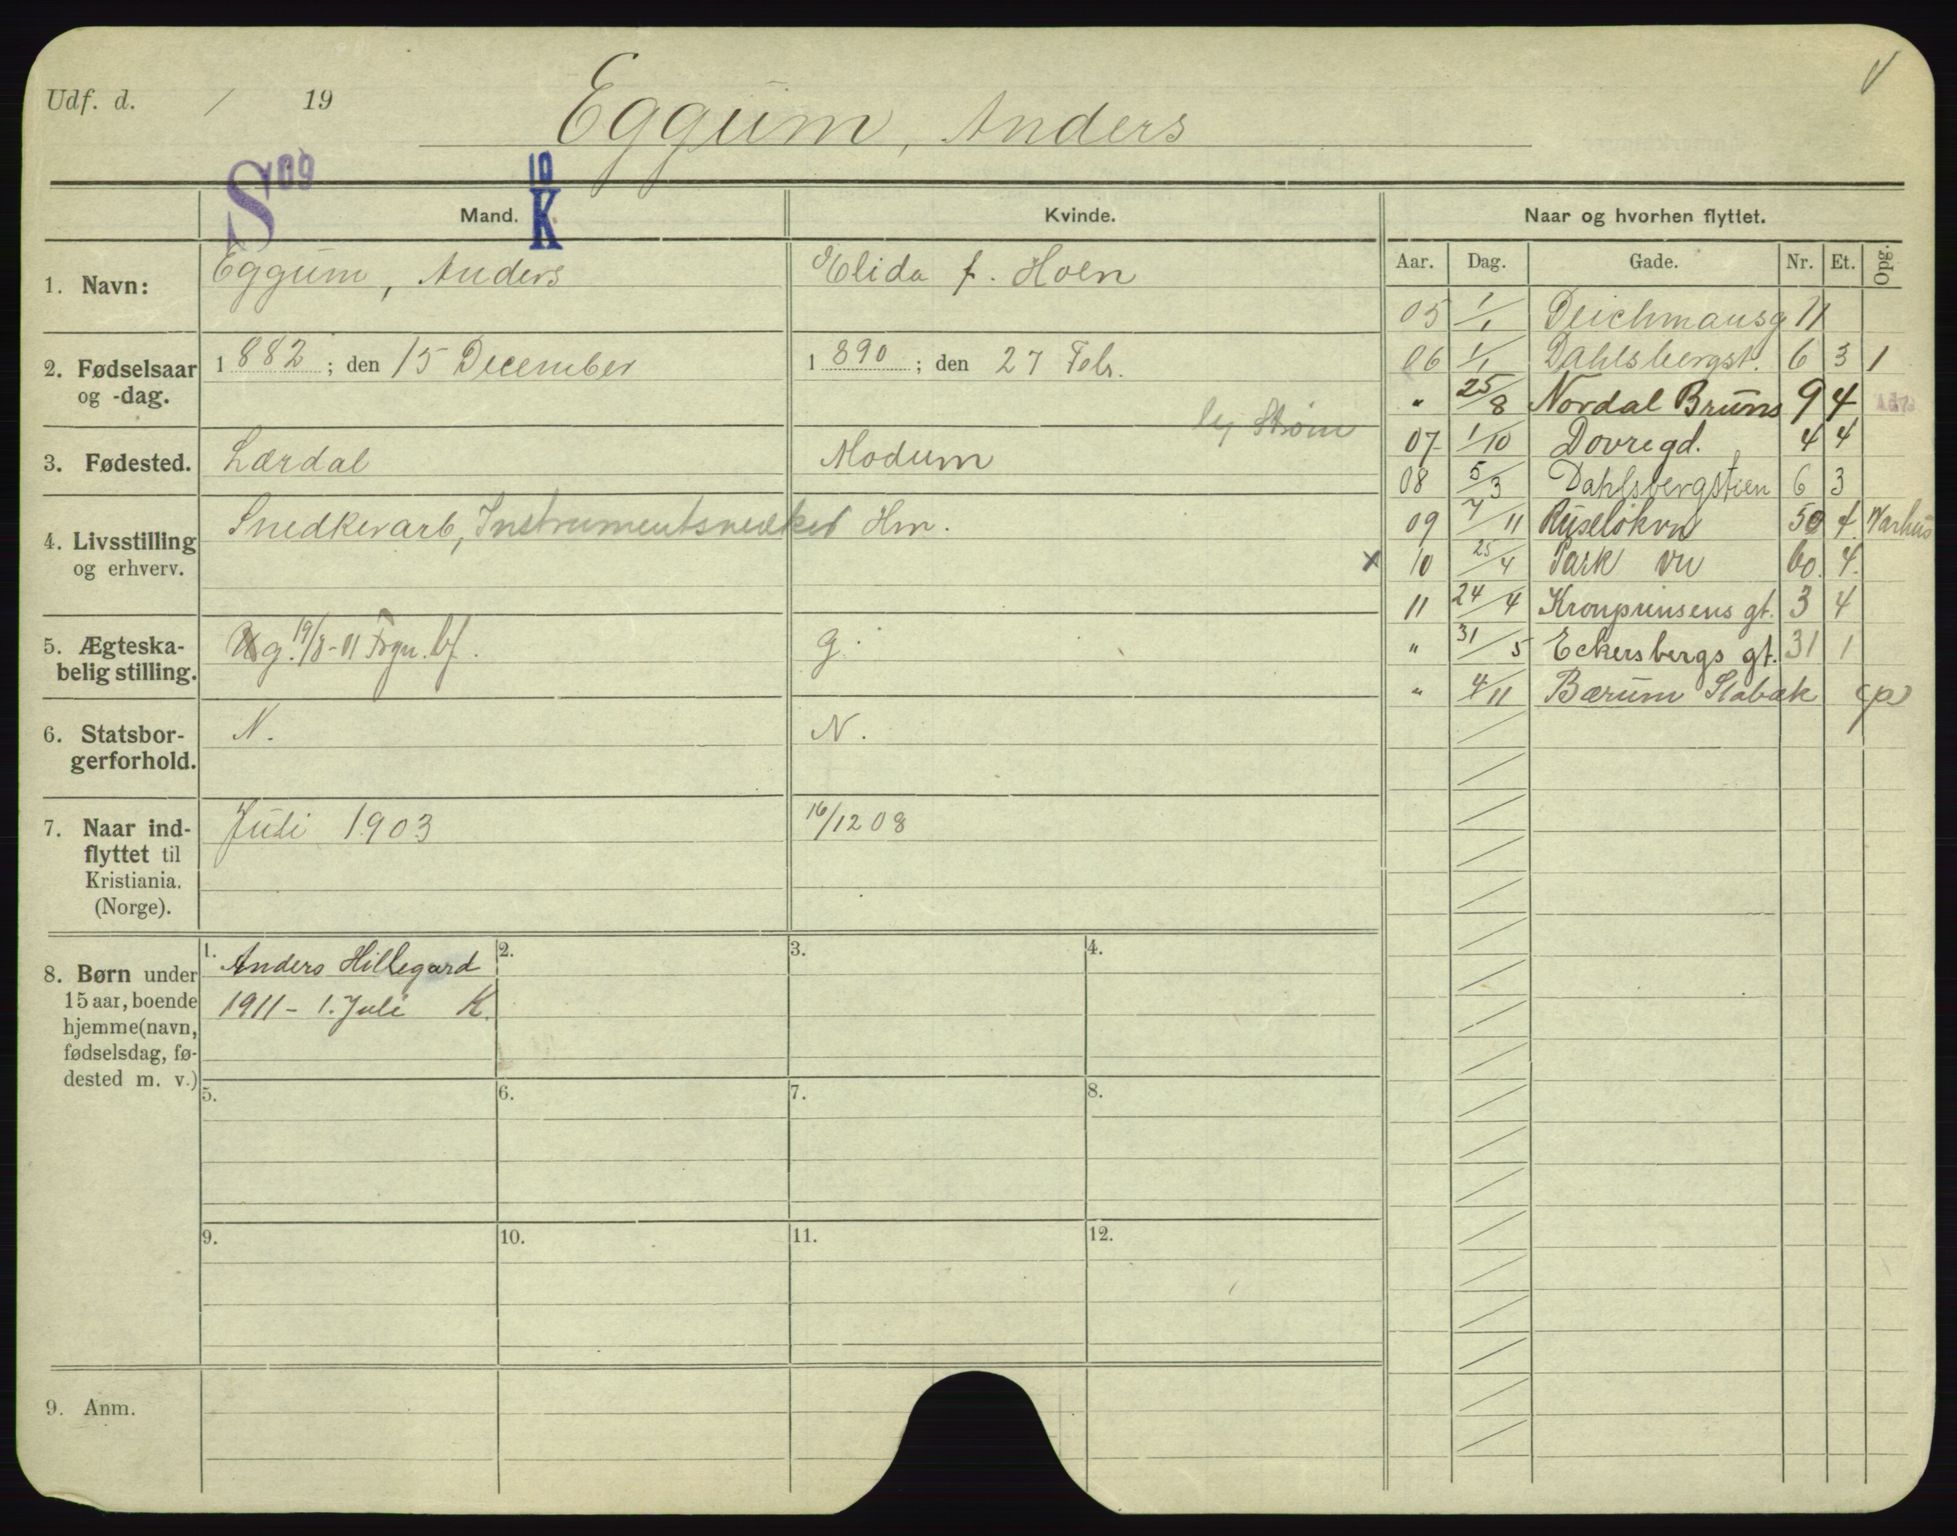 Udf. d. / 19
Eggum, Anders
S 09
10 K
Mand. Kvinde. Naar og hvorhen flyttet.
Aar. Dag. Gade. Nr. Et. Opg.
1. Navn: Eggum, Anders Elida f. Hoen
2. Fødselsaar og -dag. 1882; den 15 December 1890; den 27 Febr.
Strøm
3. Fødested. Lærdal Modum
4. Livsstilling og erhverv. Snedkerarb, Instrumentsnekker Hm.
5. Ægteska-
belig stilling. g. 19/8-11 Frgn. g.
6. Statsbor-
gerforhold. N. N.
7. Naar ind-
flyttet til
Kristiania.
(Norge). Juli 1903 16/12 08
8. Børn under
15 aar, boende
hjemme (navn,
fødselsdag, fø-
dested m. v.)
1. Anders Hillegard
1911 - 1. Juli K.
2. 3. 4.
5. 6. 7. 8.
9. 10. 11. 12.
9. Anm.
05 1/1 Deichmansg 11
06 1/1 Dahlsbergst. 6 3 1
" 25/8 Nordal Bruns 9 4
07 1/10 Dovregd. 4 4
08 5/3 Dahlsbergstien 6 3
09 7/11 Ruseløkvn 50 4
x 10 25/4 Park vn 60. 4.
11 24/4 Kronprinsens gt. 3 4
" 31/5 Eckersbergs gt. 31 1
" 4/11 Bærum Stabæk (p)